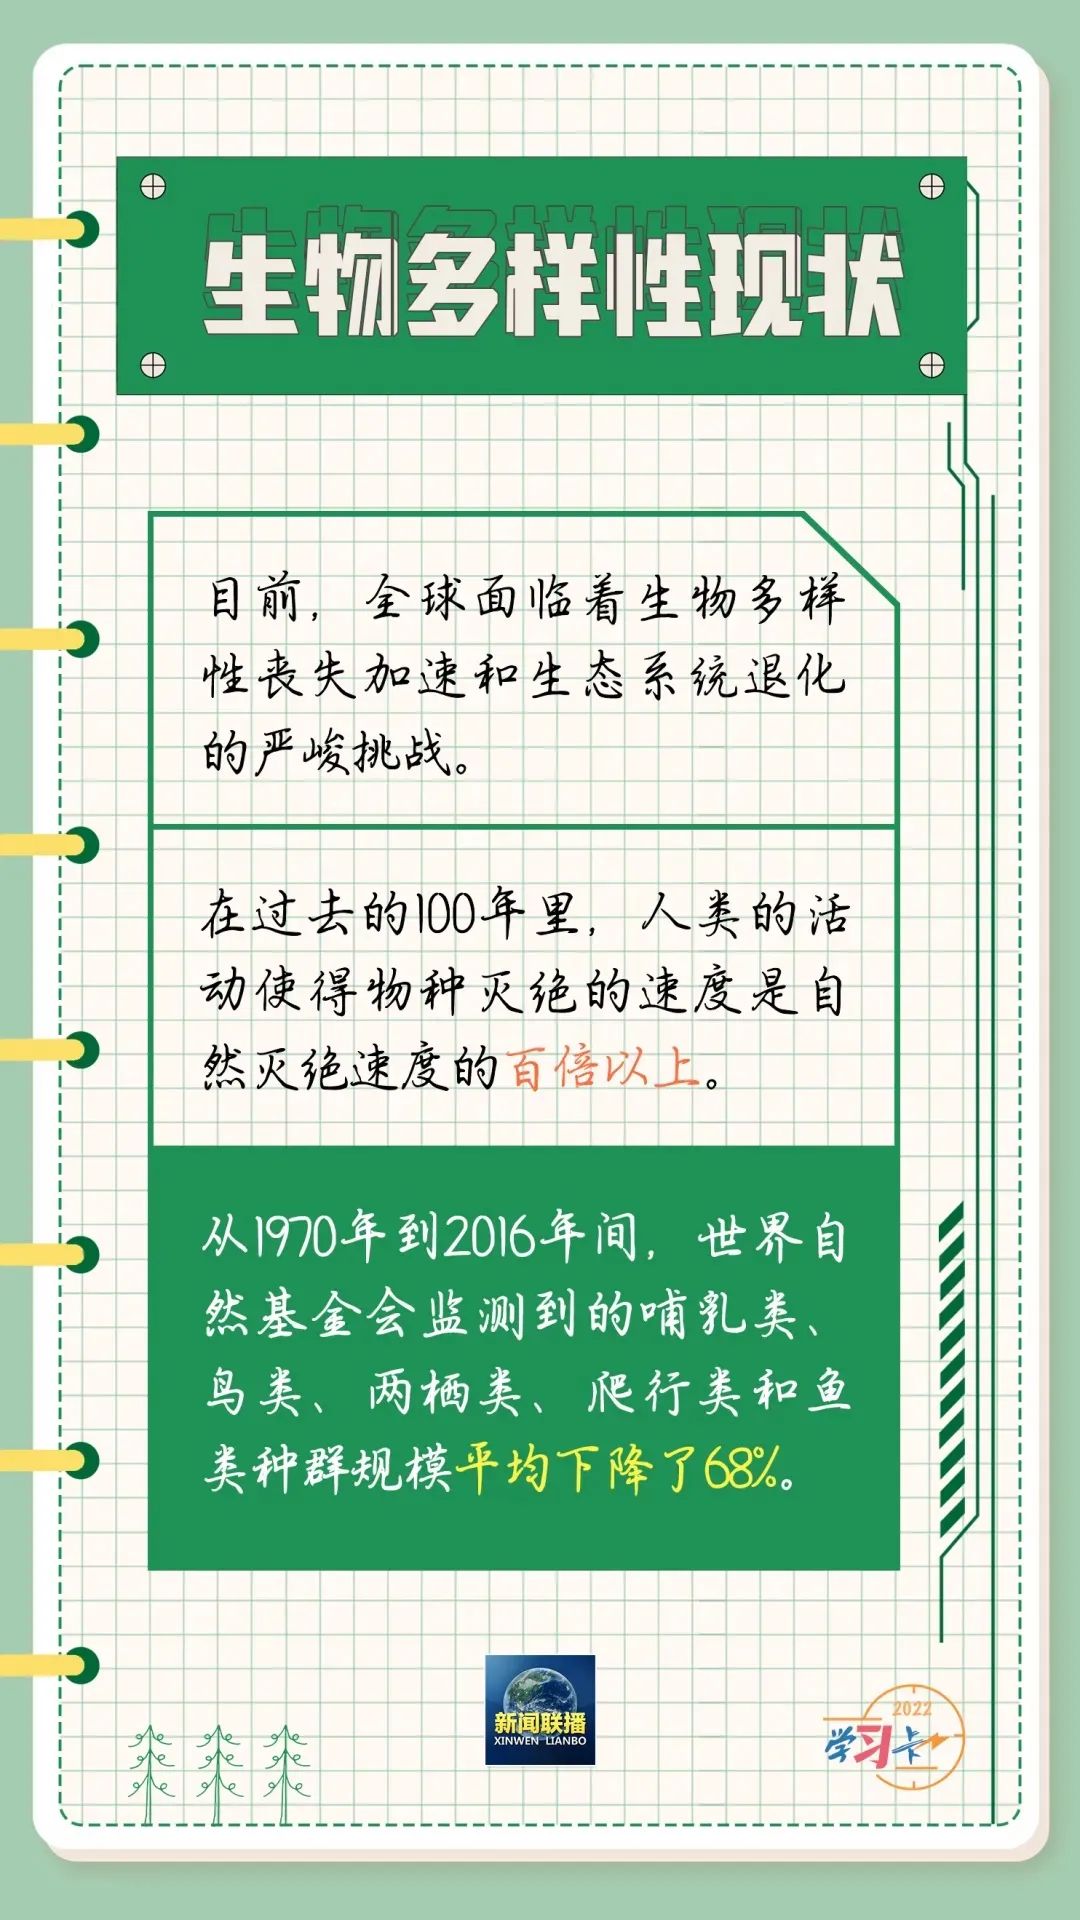 生物多样性现状
目前，全球面临着生物多样
性丧失加速和生态系统退化
的严峻挑战。
在过去的100年里，人类的活
动使得物种灭绝的速度是自
然灭绝速度的百倍以上。
从1970年到2016年间，世界自
然基金会监测到的哺乳类、
鸟类、两栖类、爬行类和鱼
类种群规模平均下降了68%。
新闻联播
XINWEN LIANBO
2022
学习卡